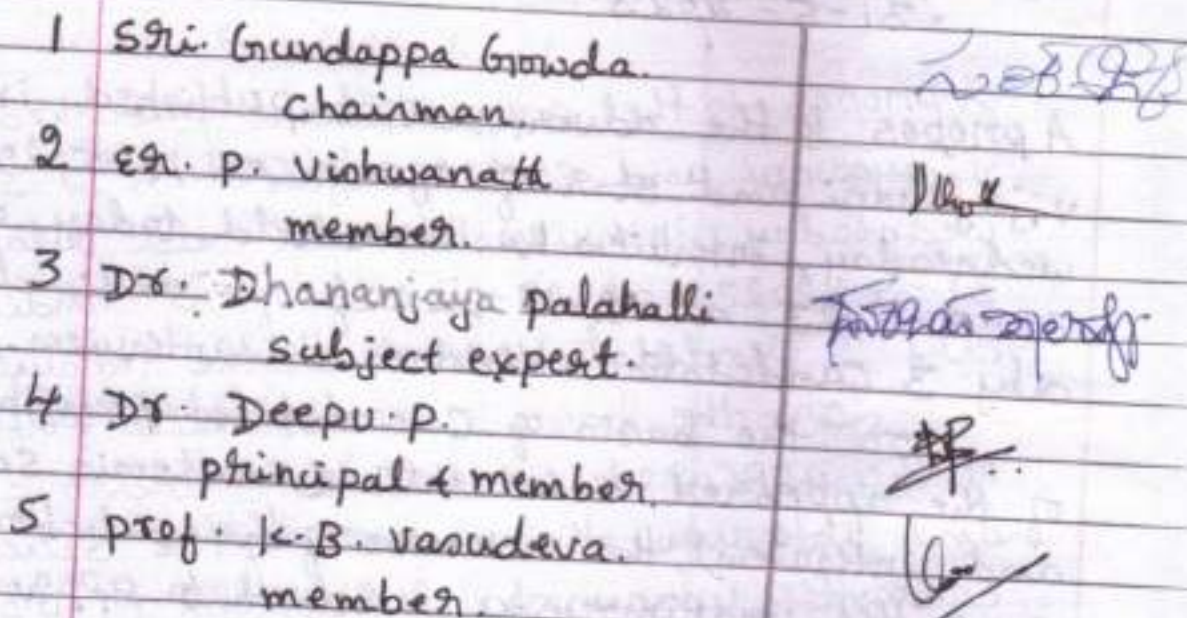 1 Sri. Gundappa Gowda.
chairman.
2 Er. P. Vishwanath
member.
3 Dr. Dhananjaya palahalli
subject expert.
4 Dr. Deepu.P.
principal & member
5 prof. K.B. vasudeva.
member.